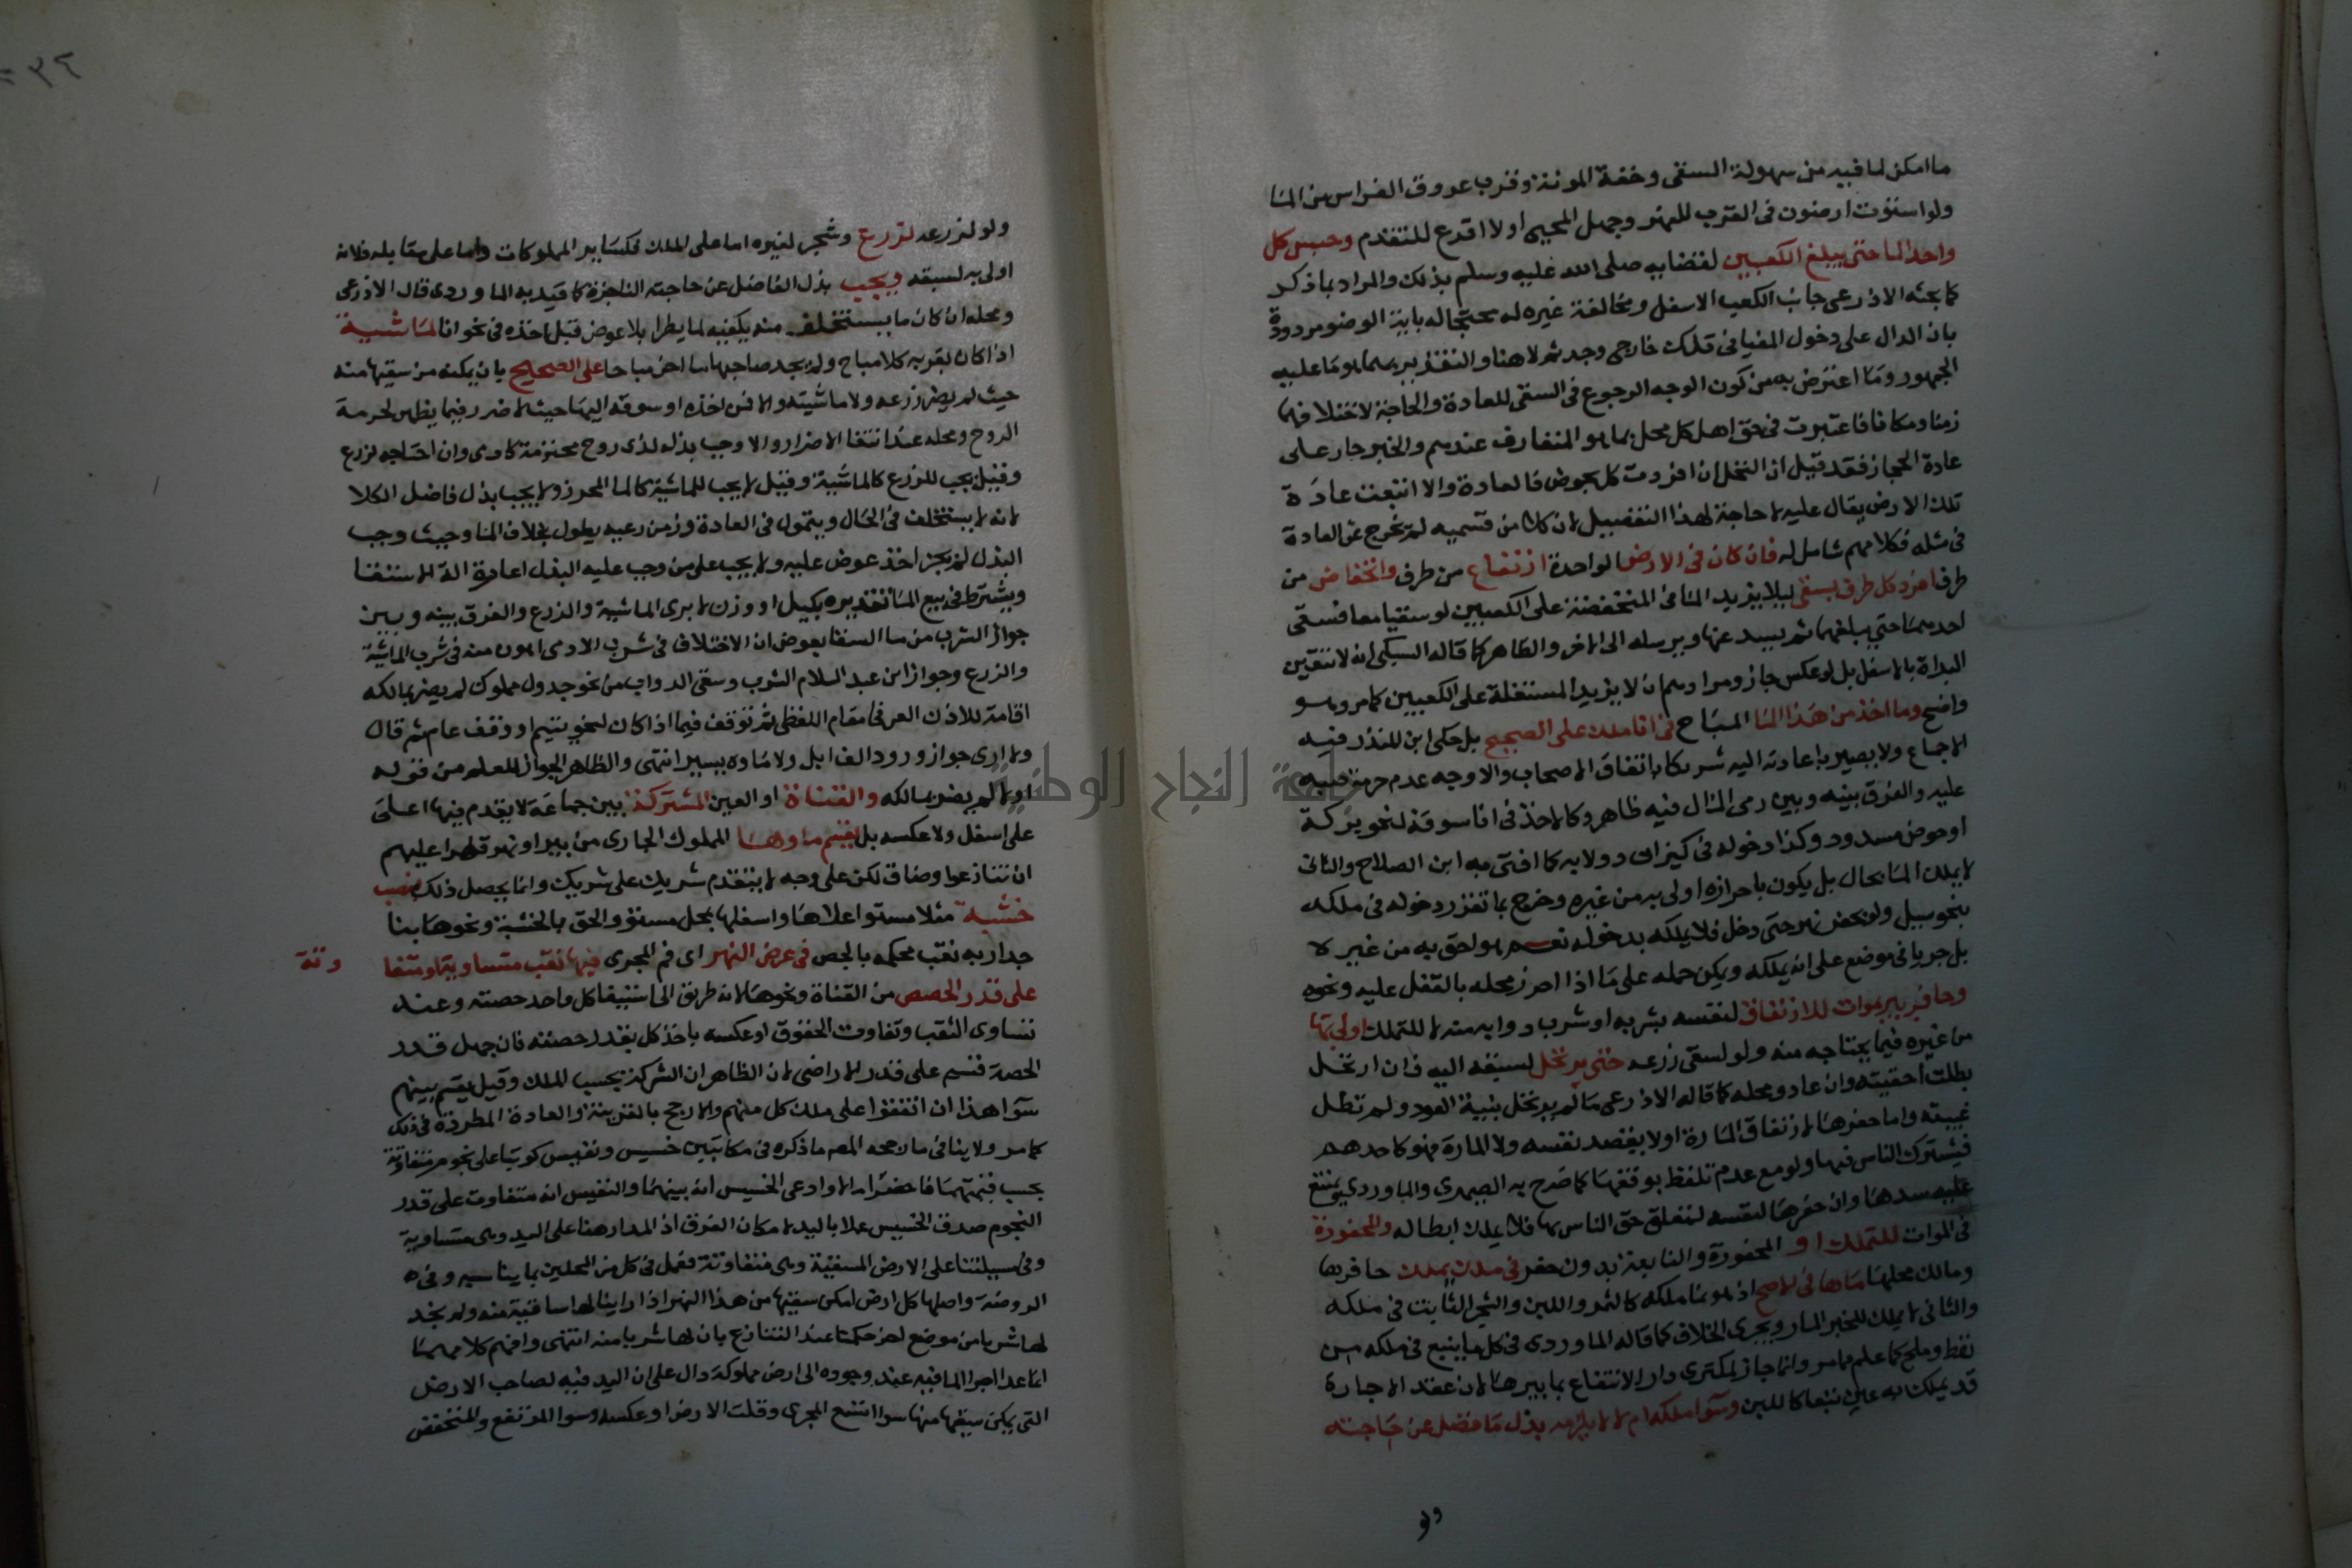 ما امكن لما فيه من سهولة السقى وخفة المونة وقرب عروق الغراس من الما
ولو استوت ارضون فى القرب للنهر وجهل المحيى اولا اقرع للتقدم وحبس كل
واحد الما حتى يبلغ الكعبين لقضايه صلى الله عليه وسلم بذلك والمراد بما ذكر
كما بحثه الاذرعى جانب الكعب الاسفل ومخالفة غيره له محتجا له باية الوضو مردودة
بان الدال على دخول المغيا فى تلك خارجى وجد ثم لا هنا والتقدير بهما هو ما عليه
الجمهور وما اعترض به من كون الوجه الرجوع فى السقى للعادة والحاجة لاختلافهما
زمنا ومكانا فاعتبرت فى حق اهل كل محل بما هو المتعارف عندهم والخبر جار على
عادة الحجاز فقد قيل ان النخل ان افردت كل بحوض فالعادة والا اتبعت عادة
تلك الارض يقال عليه لا حاجة لهذا التفصيل لان كلا من قسميه لم تخرج عن العادة
فى مثله فكلامهم شامل له فان كان فى الارض الواحدة ارتفاع من طرف وانخفاض من
طرف افرد كل طرف بسقى ليلا يزيد الما فى المنخفضة على الكعبين لو سقيا معا فيسقى
احدهما حتى يبلغهما ثم يسد عنها ويرسله الى الاخر والظاهر كما قاله السبكى انه لا تتعين
البداة بالاسفل بل لو عكس جاز ومرادهم ان لا يزيد المستفلة على الكعبين كما مر وهو
واضح وما اخذ من هذا الما المباح فى انا ملك على الصحيح بل حكى ابن المنذر فيه
الاجماع ولا يصير باعادته اليه شريكا باتفاق الاصحاب والاوجه عدم حرمة صبه
عليه والفرق بينه وبين رمى المال فيه ظاهر وكالاخذ فى انا سوقه لنحو بركة
او حوض مسدود وكذا دخوله فى كيزان دولابه كما افتى به ابن الصلاح والثانى
لا يملك الما بحال بل يكون باحرازه اولى به من غيره وخرج بما تقرر دخوله فى ملكه
بنحو سيل ولو بحفر نهر حتى دخل فلا يملكه بدخوله نعم هو احق به من غيره لا
بل جريا فى موضع على انه يملكه ويمكن حمله على ما اذا احرز محله بالقفل عليه ونحوه
وحافر بير بموات للارتفاق لنفسه بشربه او شرب دوابه منه لا للتملك اولى بمائها
من غيره فيما يحتاجه منه ولو لسقى زرعه حتى يرتحل لسبقه اليه فان ارتحل
بطلت احقيته وان عاد ومحله كما قاله الاذرعى ما لم يرتحل بنية العود ولم تطل
غيبته واما حفرها لارتفاق المارة او لا بقصد نفسه ولا المارة فهو كاحدهم
فيشترك الناس فيها ولو مع عدم تلفظ بوقفها كما صرح به الصيمرى والماوردى ويمتنع
عليه سدها وان حفرها لنفسه لتعلق حق الناس بها فلا يملك ابطاله والمحفورة
فى الموات للتملك او المحفورة والنابعة بدون حفر فى ملك يملك حافرها
ومالك محلها ماءها فى الاصح اذ هو نما ملكه كالثمر واللبن والشجر الثابت فى ملكه
والثانى لا يملك للخبر المار ويجرى الخلاف كما قاله الماوردى فى كل ما ينبع فى ملكه من
نفط وملح كما علم مما مر وانما جاز لمكترى دار الانتفاع بما بيرها لان عقد الاجارة
قد يملك به عين تبعا كاللبن وسوا ملكه ام لا لا يلزمه بذل ما فضل عن حاجته
ولو
ولو لزرعه لزرع وشجر لغيره اما على الملك فكساير المملوكات واما على مقابله فلانه
اولى به لسبقه ويجب بذل الفاضل عن حاجته الناجزة كما قيد به الماوردى قال الاذرعى
ومحله ان كان ما يستخلف منه يكفيه لما يطرا بلا عوض قبل اخذه فى نحو انا لماشية
اذا كان بقربه كلا مباح ولم يجد صاحبها ما اخر مباحا على الصحيح بان يمكنه من سقيها منه
حيث لم يضر زرعه ولا ماشيته والا فمن اخذه او سوقه اليها حيث لا ضرر فيما يظهر لحرمة
الروح ومحله عند انتفا الاضرار والا وجب بذله لذى روح محترمة كادمى وان احتاجه لزرع
وقيل يجب للزرع كالماشية وقيل لا يجب للماشية كالما المحرز ولا يجب بذل فاضل الكلا
لانه لا يستخلف فى الحال ويتمول فى العادة وزمن رعيه يطول بخلاف الما وحيث وجب
البذل لم يجز اخذ عوض عليه ولا يجب على من وجب عليه البذل اعارة الة الاستقا
ويشترط فى بيع الما تقديره بكيل او وزن لا برى الماشية والزرع والفرق بينه وبين
جواز الشرب من ما السقا بعوض ان الاختلاف فى شرب الادمى اهون منه فى شرب الماشية
والزرع وجواز ابن عبد السلام الشرب وسقى الدواب من نحو جدول مملوك لم يضر بمالكه
اقامة للاذن العرفى مقام اللفظى ثم توقف فيما اذا كان لنحو يتيم او وقف عام ثم قال
ولا ارى جواز ورود الف ابل ولا ماوه يسير انتهى والظاهر الجواز للعلم من قوله
اولا لم يضر بمالكه والقناة او العين المشتركة بين جماعة لا يقدم فيها اعلى
على اسفل ولا عكسه بل يقسم ماوها المملوك الجارى من بير او نهر قهرا عليهم
ان تنازعوا وضاق لكن على وجه لا يتقدم شريك على شريك وانما يحصل ذلك بنصب
خشبة مثلا مستو اعلاها واسفلها بمحل مستو والحق بالخشبة ونحوها بنا
جدار به نقب محكمة بالجص فى عرض النهر اى فم المجرى فيها نقب متساوية او متفا
وتة
على قدر الحصص من القناة ونحوها لانه طريق الى استيفا كل واحد حصته وعند
تساوى الثقب وتفاوت الحقوق او عكسه ياخذ كل بقدر حصته فان جهل قدر
الحصة قسم على قدر الاراضى لان الظاهر ان الشركة بحسب الملك وقيل يقسم بينهم
سوا هذا ان اتفقوا على ملك كل منهم والا رجح بالقرينة والعادة المطردة فى ذلك
كما مر ولا ينافى ما رجحه المص ما ذكره فى مكاتبين خسيس ونفيس كوتبا على نجوم متفاوتة
بحسب قيمتهما فاحضرا مالا وادعى الخسيس انه بينهما والنفيس انه متفاوت على قدر
النجوم صدق الخسيس عملا باليد لامكان الفرق اذ المدار هنا على اليد وهى متساوية
وفى مسيلتنا على الارض المسقية وهى متفاوتة فعمل فى كل من المحلين بما يناسبه وفى
الروضة واصلها كل ارض امكن سقيها من هذا النهر اذا راينا لها ساقية منه ولم نجد
لها شربا من موضع اخر حكمنا عند التنازع بان لها شربا منه انتهى وافهم كلامهما
ان ما عد لاجرا الما فيه عند وجوده الى ارض مملوكة دال على ان اليد فيه لصاحب الارض
التى يمكن سقيها منها سوا اتسع المجرى وقلت الارض او عكسه وسوا المرتفع والمنخفض
٣٢
جامعة النجاح الوطنية